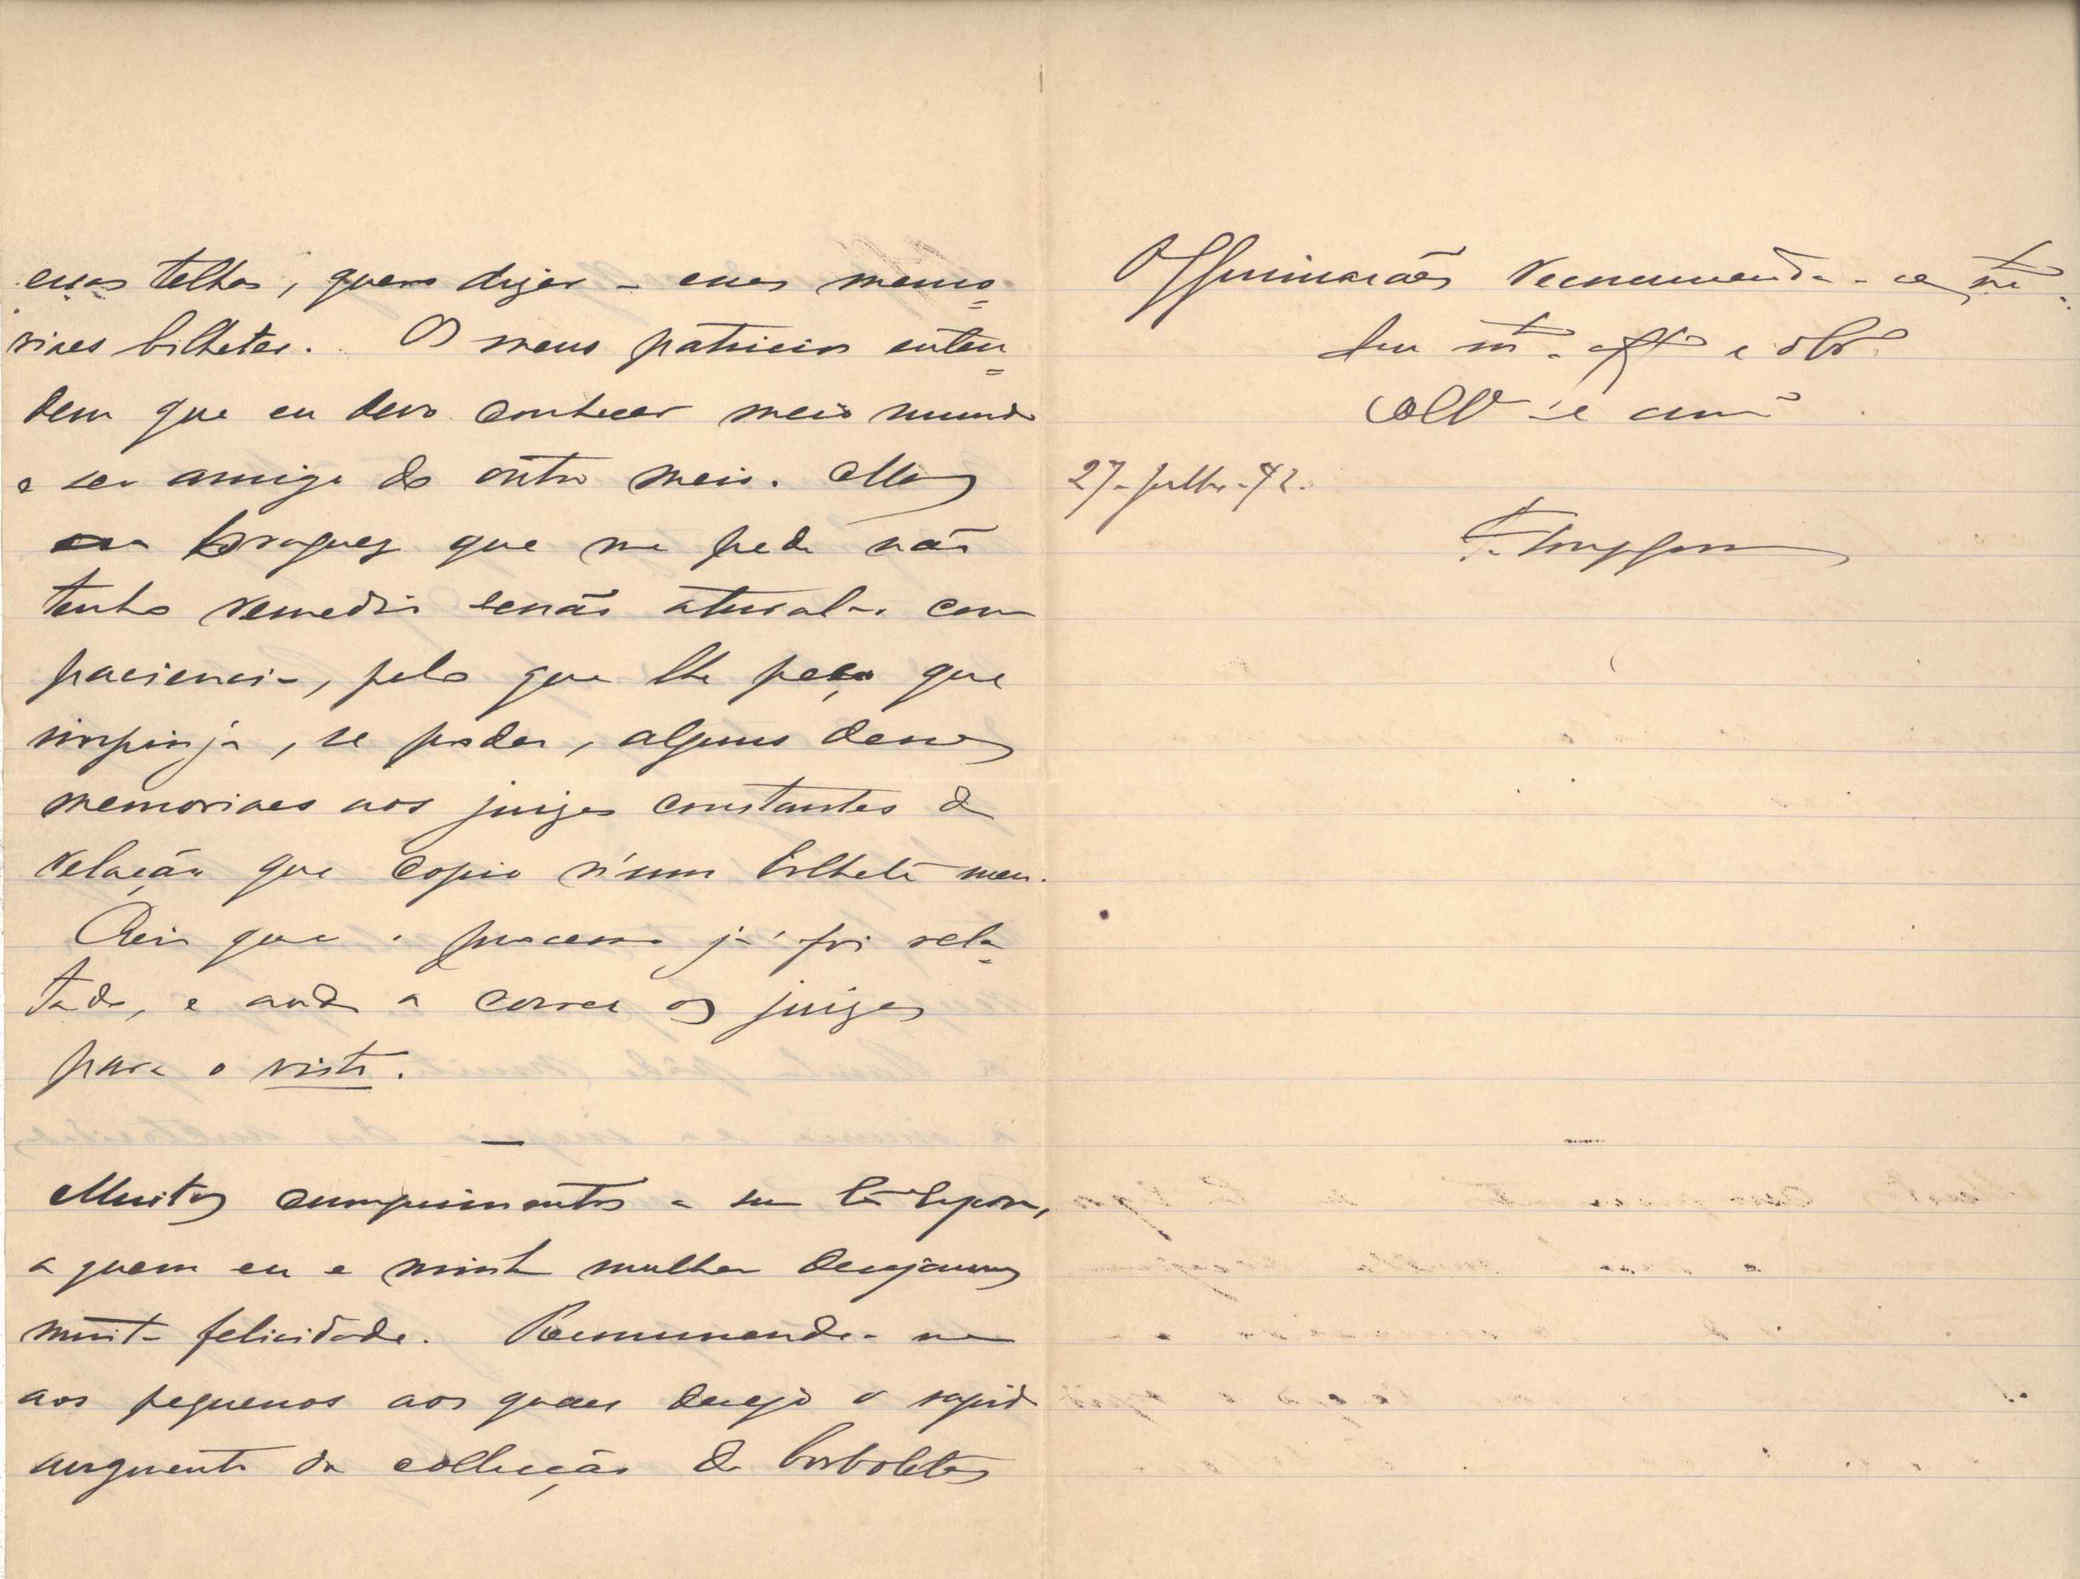 essas telhas, quero dizer – esses memo-
riaes bilhetes. Os meus patricios enten-
dem que eu devo conhecer meio mundo
e ser amigo do outro meio. Mas
que me pede não
tenho remedio senão atural-o com
paciencia, pelo que lhe peço que
impinja, se poder, alguns desses
memoriaes aos juizes constantes da
relação que copio n'um bilhete meu.
Creio que o processo já foi rela-
tado, e anda a correr os juizes
para o visto.
—
Muitos cumprimentos a sua Esposa,
a quem eu e minha mulher desejamos
muita felicidade. Recommenda-me
aos pequenos aos quaes desejo o rapido
augmento da collecção de borboletas
O Guimarães recommenda-se mto.
Seu mto. affo e obro
Collª e amº
27-Julho-92.